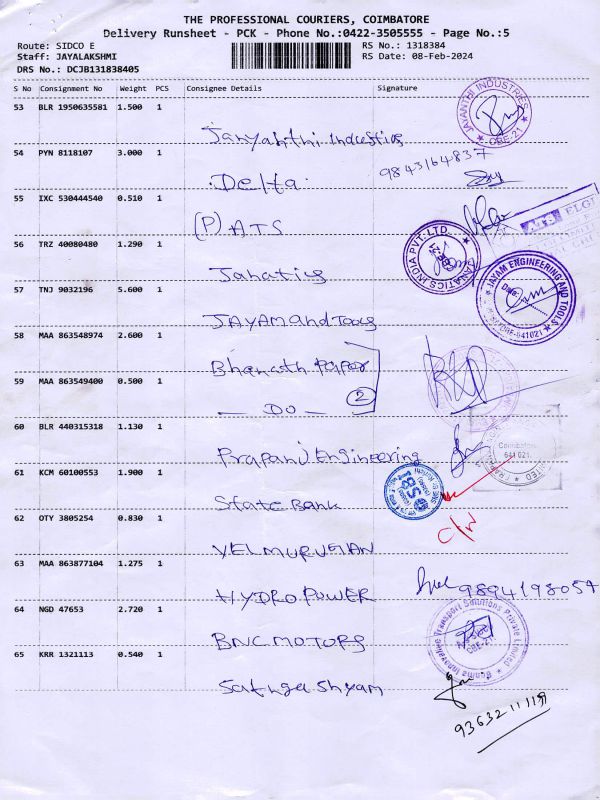 THE PROFESSIONAL COURIERS, COIMBATORE
Delivery Runsheet - PCK - Phone No.:0422-3505555 - Page No.:5
Route: SIDCO E
RS No.: 1318384
Staff: JAYALAKSHMI
RS Date: 08-Feb-2024
DRS No.: DCJB131838405
S No Consignment No Weight PCS Consignee Details Signature
53 BLR 1950635581 1.500 1
JAYANTHI INDUSTRIES
CBE-21
54 PYN 8118107 3.000 1
Delta
9843164837
55 IXC 530444540 0.510 1
(P) ATS
56 TRZ 40080480 1.290 1
Janatics
JANATICS INDIA PVT. LTD.
57 TNJ 9032196 5.600 1
JAYAM and Tools
JAYAM ENGINEERING AND TOOLS
641021
58 MAA 863548974 2.600 1
59 MAA 863549400 0.500 1
— DO — 2
60 BLR 440315318 1.130 1
Engineering
Coimbatore
641 021.
61 KCM 60100553 1.900 1
State Bank
62 OTY 3805254 0.830 1
VELMURUGAN
63 MAA 863877104 1.275 1
HYDRO POWER
9894198057
64 NGD 47653 2.720 1
BNC MOTORS
Innovative Transport Solutions Private Limited
CBE-21
65 KRR 1321113 0.540 1
Shyam